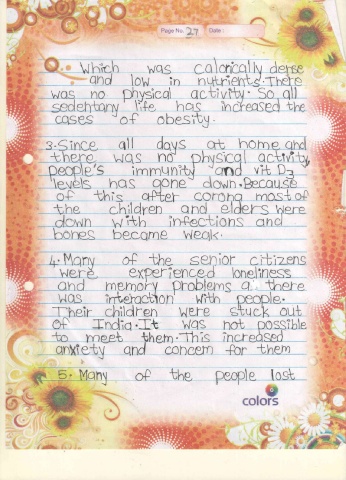 Page No. 27 Date:
Which was calorically dense
and low in nutrients. There
was no physical activity. So all
sedehtany life has increased the
cases of obesity.
3. Since all days at home and
there was no physical activity
people's immunity and vit D3
levels has gone down. Because
of this after corona most of
the children and elders were
down with infections and
bones become weak.
4. Many of the senior citizens
were experienced loneliness
and memory problems as there
was interaction with people.
Their children were stuck out
of India. It was not possible
to meet them. This increased
anxiety and concern for them
5. Many of the people lost
colors